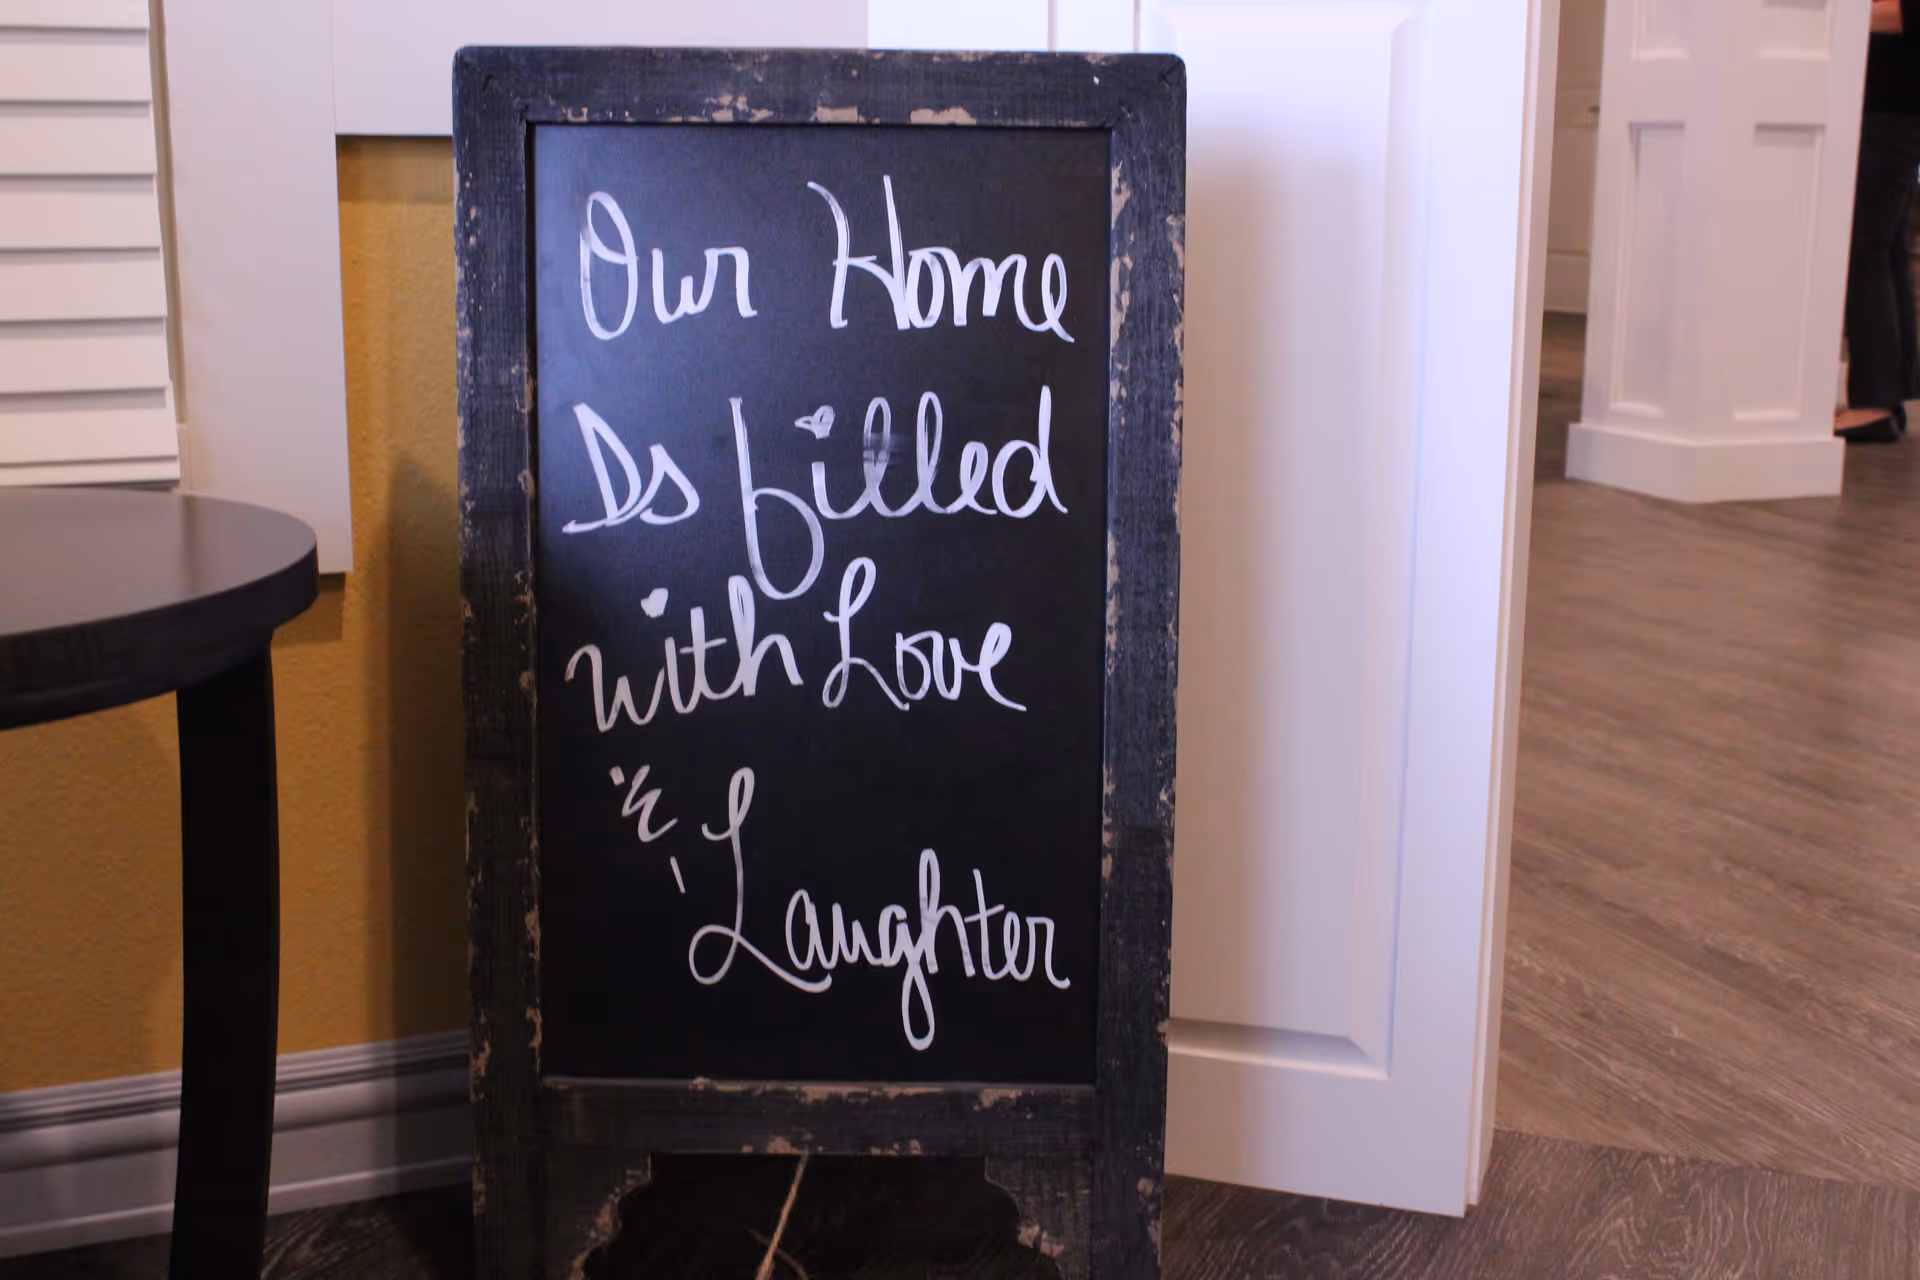 Our Home
Is filled
with Love
&
Laughter